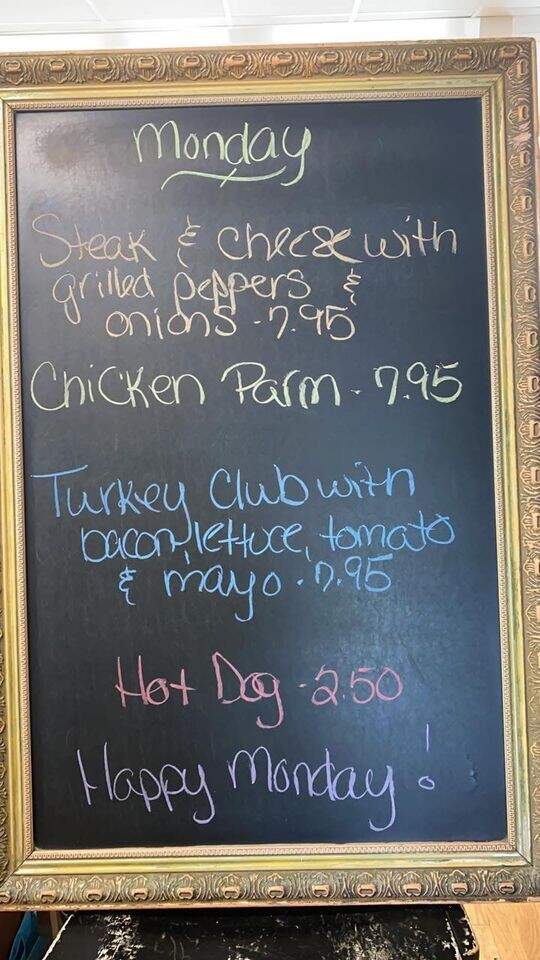 Monday
Steak & cheese with
grilled peppers &
onions - 7.95
Chicken Parm - 7.95
Turkey Club with
bacon, lettuce, tomato
& mayo - 7.95
Hot Dog - 2.50
Happy Monday!